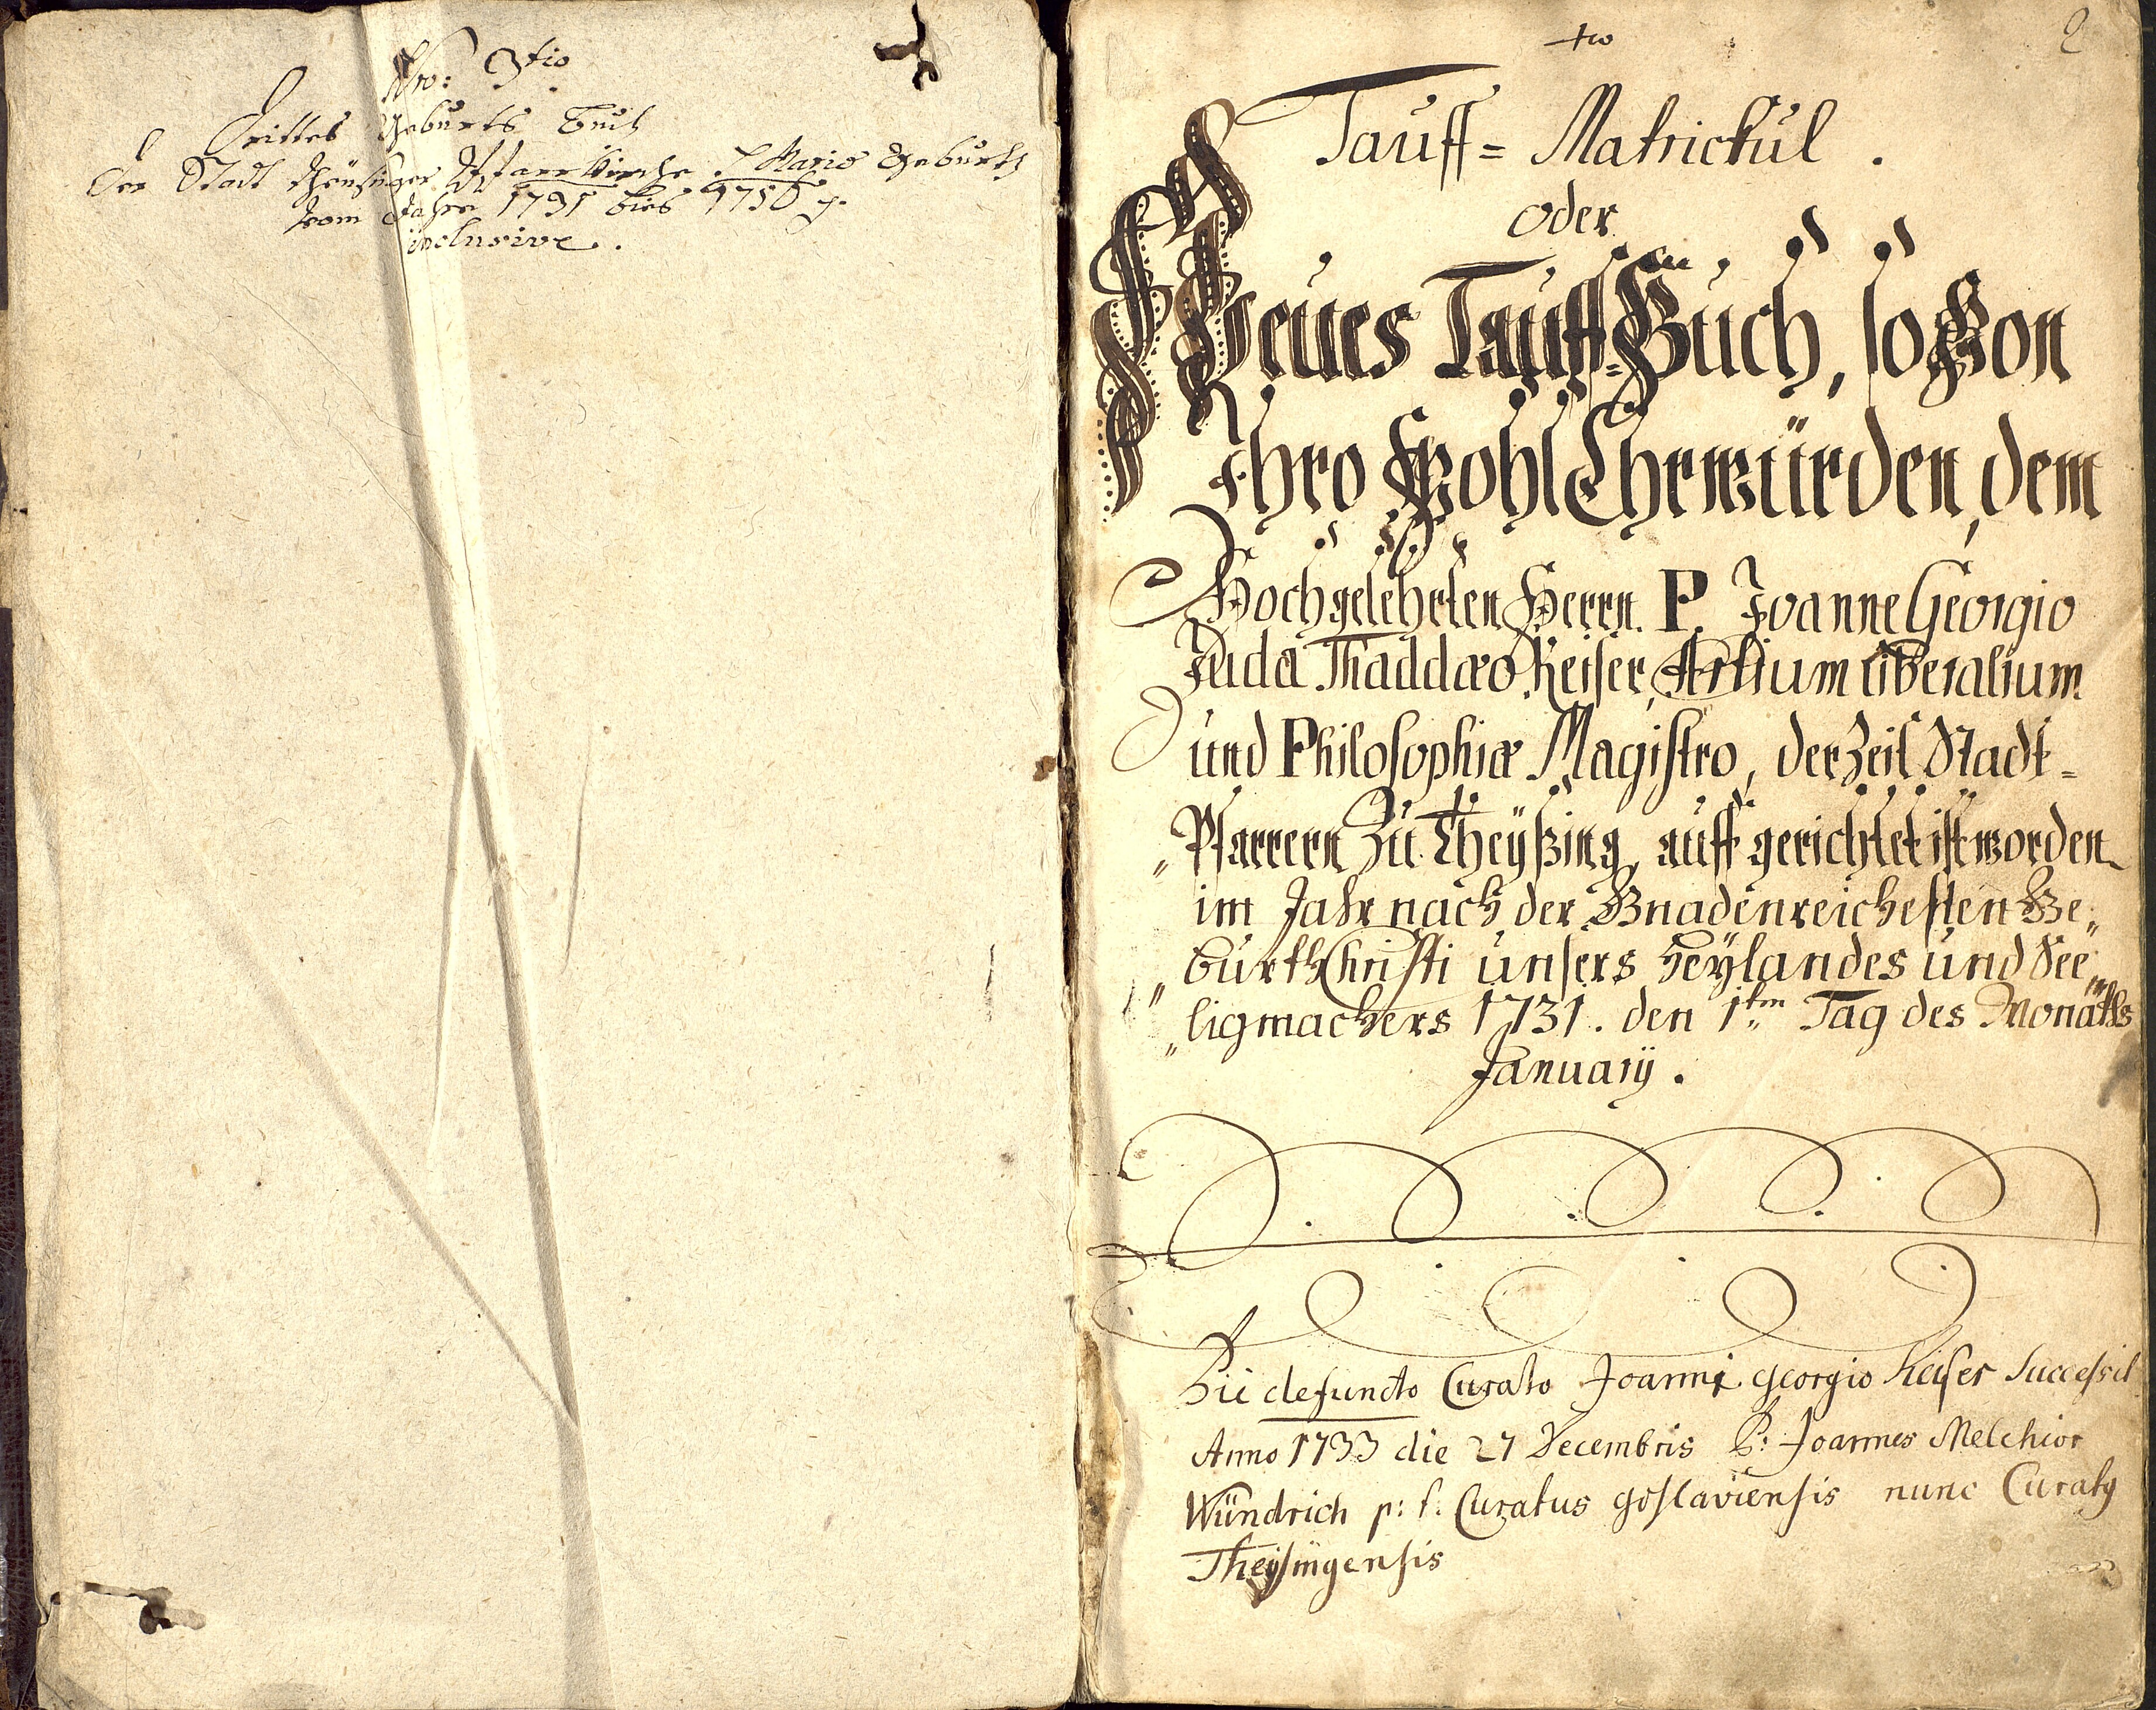 Nro: 3tio
Drittes Geburts Buch
der Stadt Theusinger Pfarrkirche Mariæ Geburth
vom Jahre 1731 bies 1750
inclusive.
2
Tauff= Matrickul.
oder
Neues Tauff=Buch, so Von
Ihro WohlEhrwürden, dem
Hochgelehrten Herrn P. Joanne Georgio
Juda Thaddæo Keiser, Artium liberalium
und Philosophiæ Magistro, der Zeit Stadt=
„Pfarrern Zu Theyßing, auffgerichtet ist worden
im Jahr nach der Gnadenreichesten Ge„
„burth Christi unsers Heylandes und See„
„ligmachers 1731. den 1ten Tag des Monaths
January.
Hic defuncto Curato Joanni georgio Keiser Successit
Anno 1733 die 27 Decembris P: Joannes Melchior
Wündrich p: t. Curatus goslaviensis nunc Curatq
Theysingensis